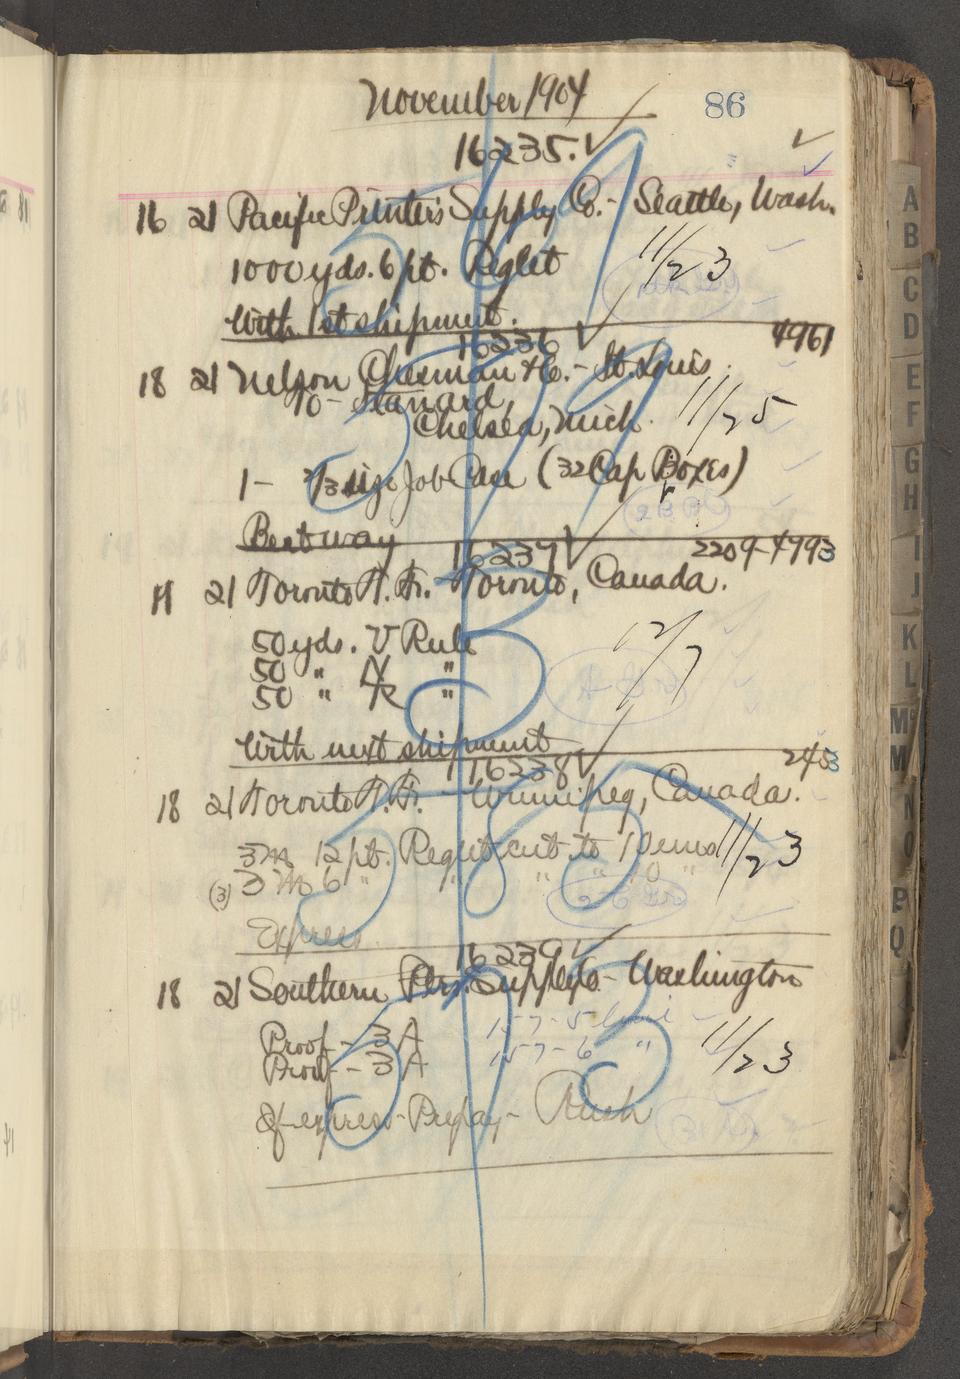 November 1904
86
16235. ✓
16 21 Pacific Printer's Supply Co. - Seattle, Wash.
1000 yds. 6 pt. Reglet
11/23
With 1st shipment.
4961
16236 ✓
18 21 Nelson Chesman & Co. - St. Louis
To - Stanard,
Chelsea, Mich.
11/25
1 - 2/3 size Job Case (32 Cap Boxes)
Best way
2209-4993
16237 ✓
21 Toronto T. Fr. Toronto, Canada.
50 yds. V Rule
50 " N "
50 " R "
12/7
With next shipment
2453
16238 ✓
18 21 Toronto T. Fr. - Winnipeg, Canada.
3 M 12 pt. Reglet cut to 10 ems
(3) 3 M 6 " " " " 10 "
11/23
Express
16239 ✓
18 21 Southern Ptrs. Supply Co. - Washington
Proof - 3 A 157-5
Proof - 3 A 157-6 "
11/23
express - Prepay - Rush
A
B
C
D
E
F
G
H
I
J
K
L
M
M
N
O
P
Q